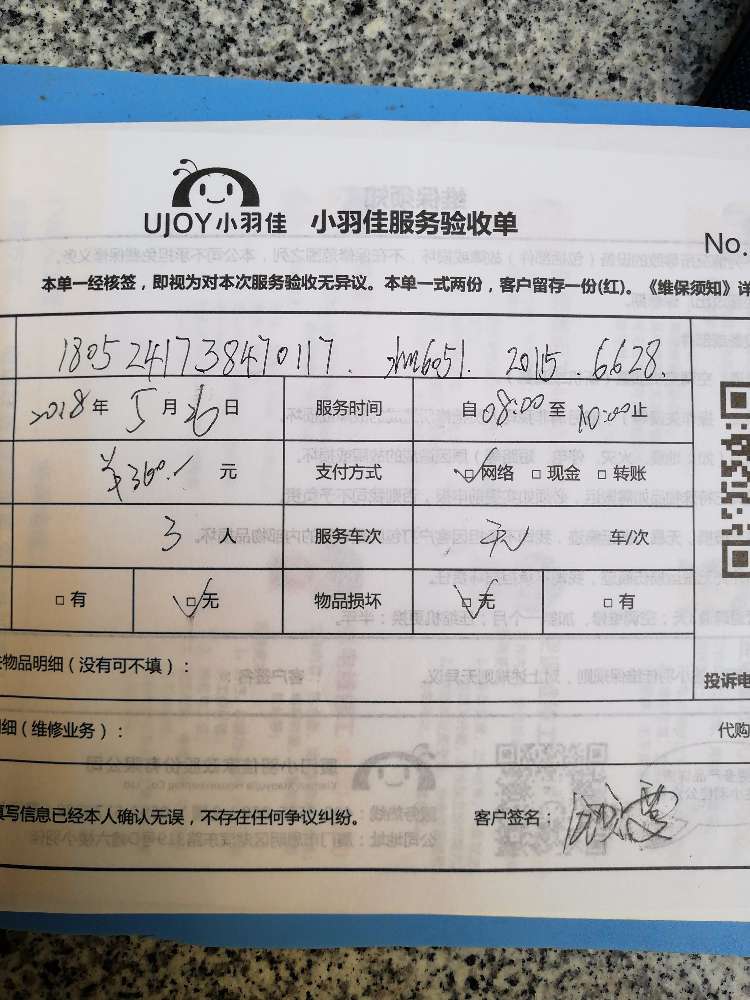 UJOY小羽佳 小羽佳服务验收单
No.
本单一经核签，即视为对本次服务验收无异议。本单一式两份，客户留存一份(红)。《维保须知》详
180524173847 0117. 6051. 20115.6628.
2018年 5月26日 服务时间 自08:00至10:00止
¥360.- 元 支付方式 ☑网络 □现金 □转账
3 人 服务车次 无 车/次
□有 ☑无 物品损坏 ☑无 □有
物品明细（没有可不填）：
投诉电
细（维修业务）：
代购
填写信息已经本人确认无误，不存在任何争议纠纷。 客户签名：